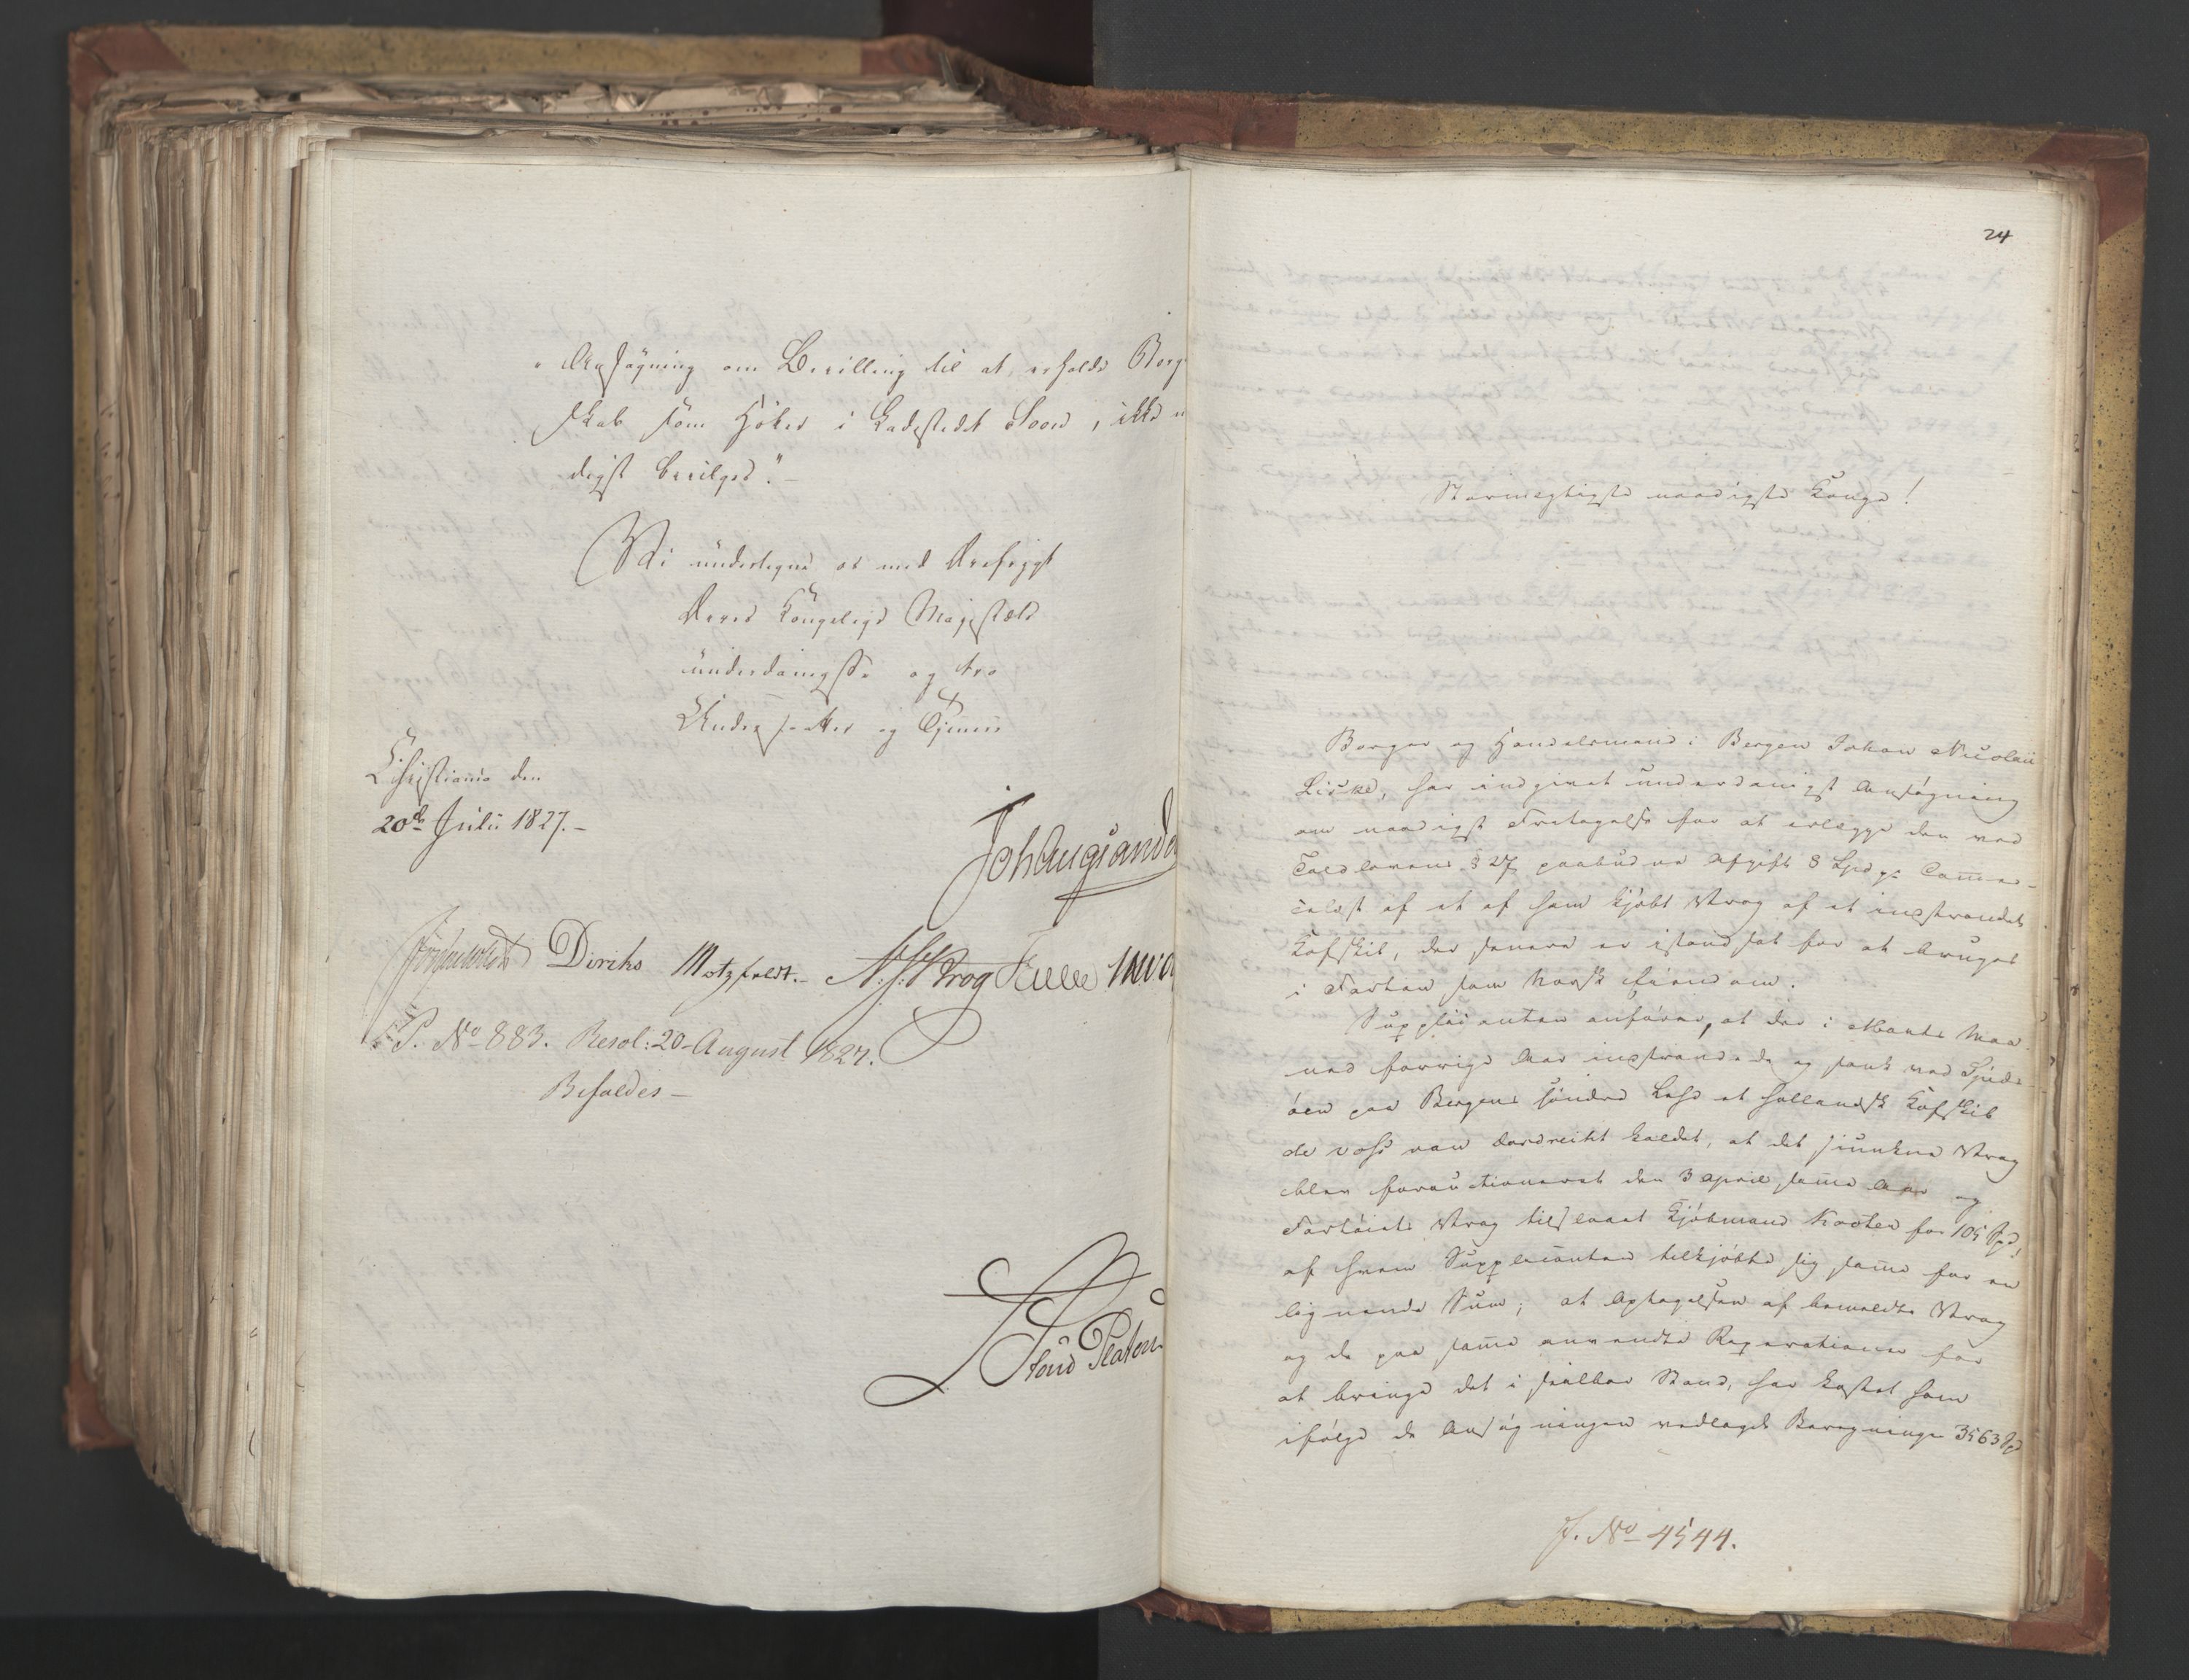 "Ansögning om Bevilling til at erholde Borg
skab som Höker i Ladestedet Soon, ikke n
digst bevilget." -
Vi undertegne os med Ærefrygt
Deres Kongelige Majestæts
underdanigste og tro
Undersaatter og Tjenere
Christiania den
20de Julii 1827. -
Joh Aug Sande
Diriks Motzfeldt. - N. J. Krog
S. P. No 883. Resol: 20 August 1827.
Bifaldes -
Platen
24
Stormægtigste naadigste Konge!
Borger og Handelsmand i Bergen Johan Nicolai
Liske, har indgivet underdanigst Ansögning
om naadigst Fritagelse for at erlægge den ved
Toldlovens § 27 paabudne Afgift 8 Spd pr Commer-
celæst af et af ham kjöbt Vrag af et instrandet
Kofskib, der senere er istandsat for at bruges
i Farten som Norsk Eiendom.
Supplicanten anförer, at der i Marts Maa-
ned forrige Aar instrandede og sank ved
öen paa Bergens söndre Leed et hollandsk Kofskib
de vosse van dordrecht kaldet, at det sunkne Vrag
blev forauctioneret den 3 April samme Aar og
Fartöiets Vrag tilslaaet Kjöbmand Kooter for 105 Spd,
af hvem Supplicanten tilkjöbte sig samme for en
lignende Sum; at Optagelsen af bemeldte Vrag
og de paa samme anvendte Reparationer for
at bringe det i seilbar Stand, har kostet ham
ifölge de Ansögningen vedlagde Beregninger 3563 Spd
J. No 4544.